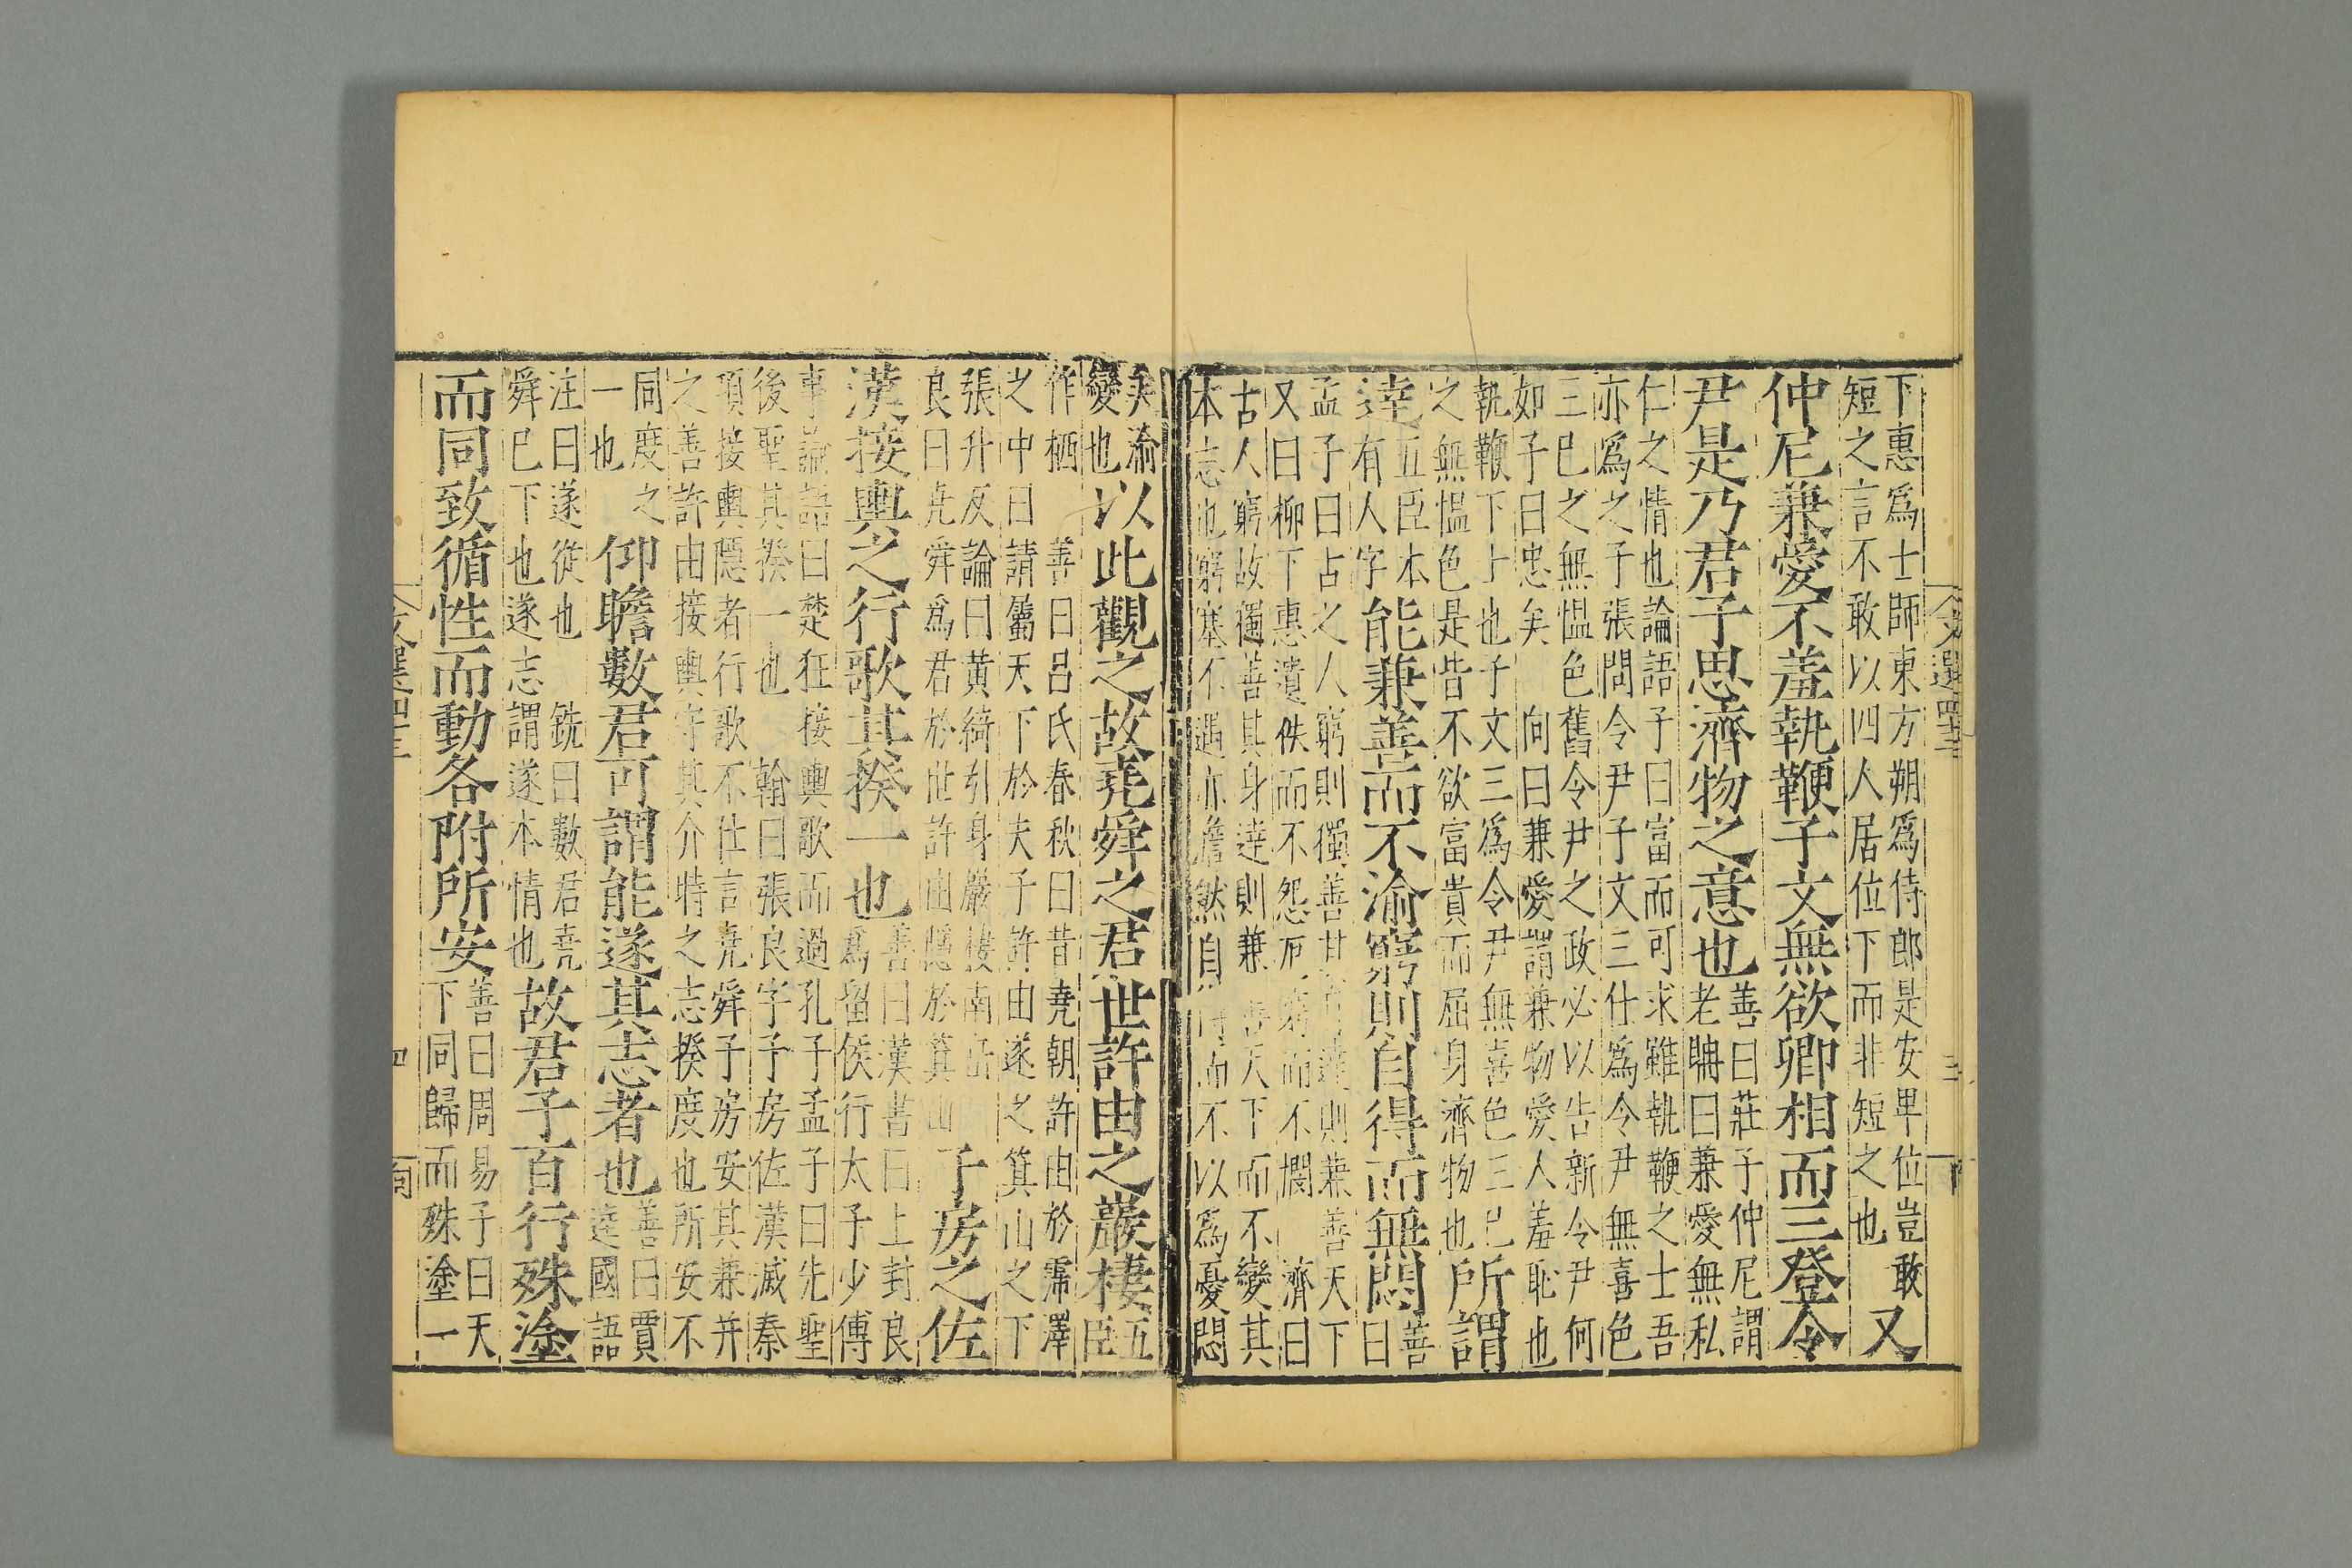 下惠爲士師東方朔爲侍郎是安卑位豈敢
短之言不敢以四人居位下而非短之也
又
仲尼兼愛不羞執鞭子文無欲卿相而三登令
尹是乃君子思濟物之意也
善曰莊子仲尼謂
老聃曰兼愛無私
仁之情也論語子曰富而可求雖執鞭之士吾
亦爲之子張問令尹子文三仕爲令尹無喜色
三已之無愠色舊令尹之政必以告新令尹何
如子曰忠矣 向曰兼愛謂兼物愛人羞恥也
執鞭下士也子文三爲令尹無喜色三已
之無愠色是皆不欲富貴而屈身濟物也
所謂
達
五臣本
有人字
能兼善而不渝窮則自得而無悶
善
曰
孟子曰古之人窮則獨善其身達則兼善天下
又曰柳下惠遺佚而不怨厄窮而不憫 濟曰
古人窮故獨善其身達則兼善天下而不變其
本志也窮塞不遇亦澹然自得而不以爲憂悶
矣渝
變也
以此觀之故堯舜之君世許由之巖棲
五
臣
作栖 善曰呂氏春秋曰昔堯朝許由於霈澤
之中曰請屬天下於夫子許由遂之箕山之下
張升反論曰黄綺引身巖棲南岳
良曰堯舜爲君於世許由隱於箕山
子房之佐
漢接輿之行歌其揆一也
善曰漢書曰上封良
爲留侯行太子少傅
事論語曰楚狂接輿歌而過孔子孟子曰先聖
後聖其揆一也 翰曰張良字子房佐漢滅秦
項接輿隱者行歌不仕言堯舜子房安其兼并
之善許由接輿守其介特之志揆度也所安不
同度之
一也
仰瞻數君可謂能遂其志者也
善曰賈
逵國語
注曰遂從也 銑曰數君堯
舜已下也遂志謂遂本情也
故君子百行殊塗
而同致循性而動各附所安
善曰周易子曰天
下同歸而殊塗一